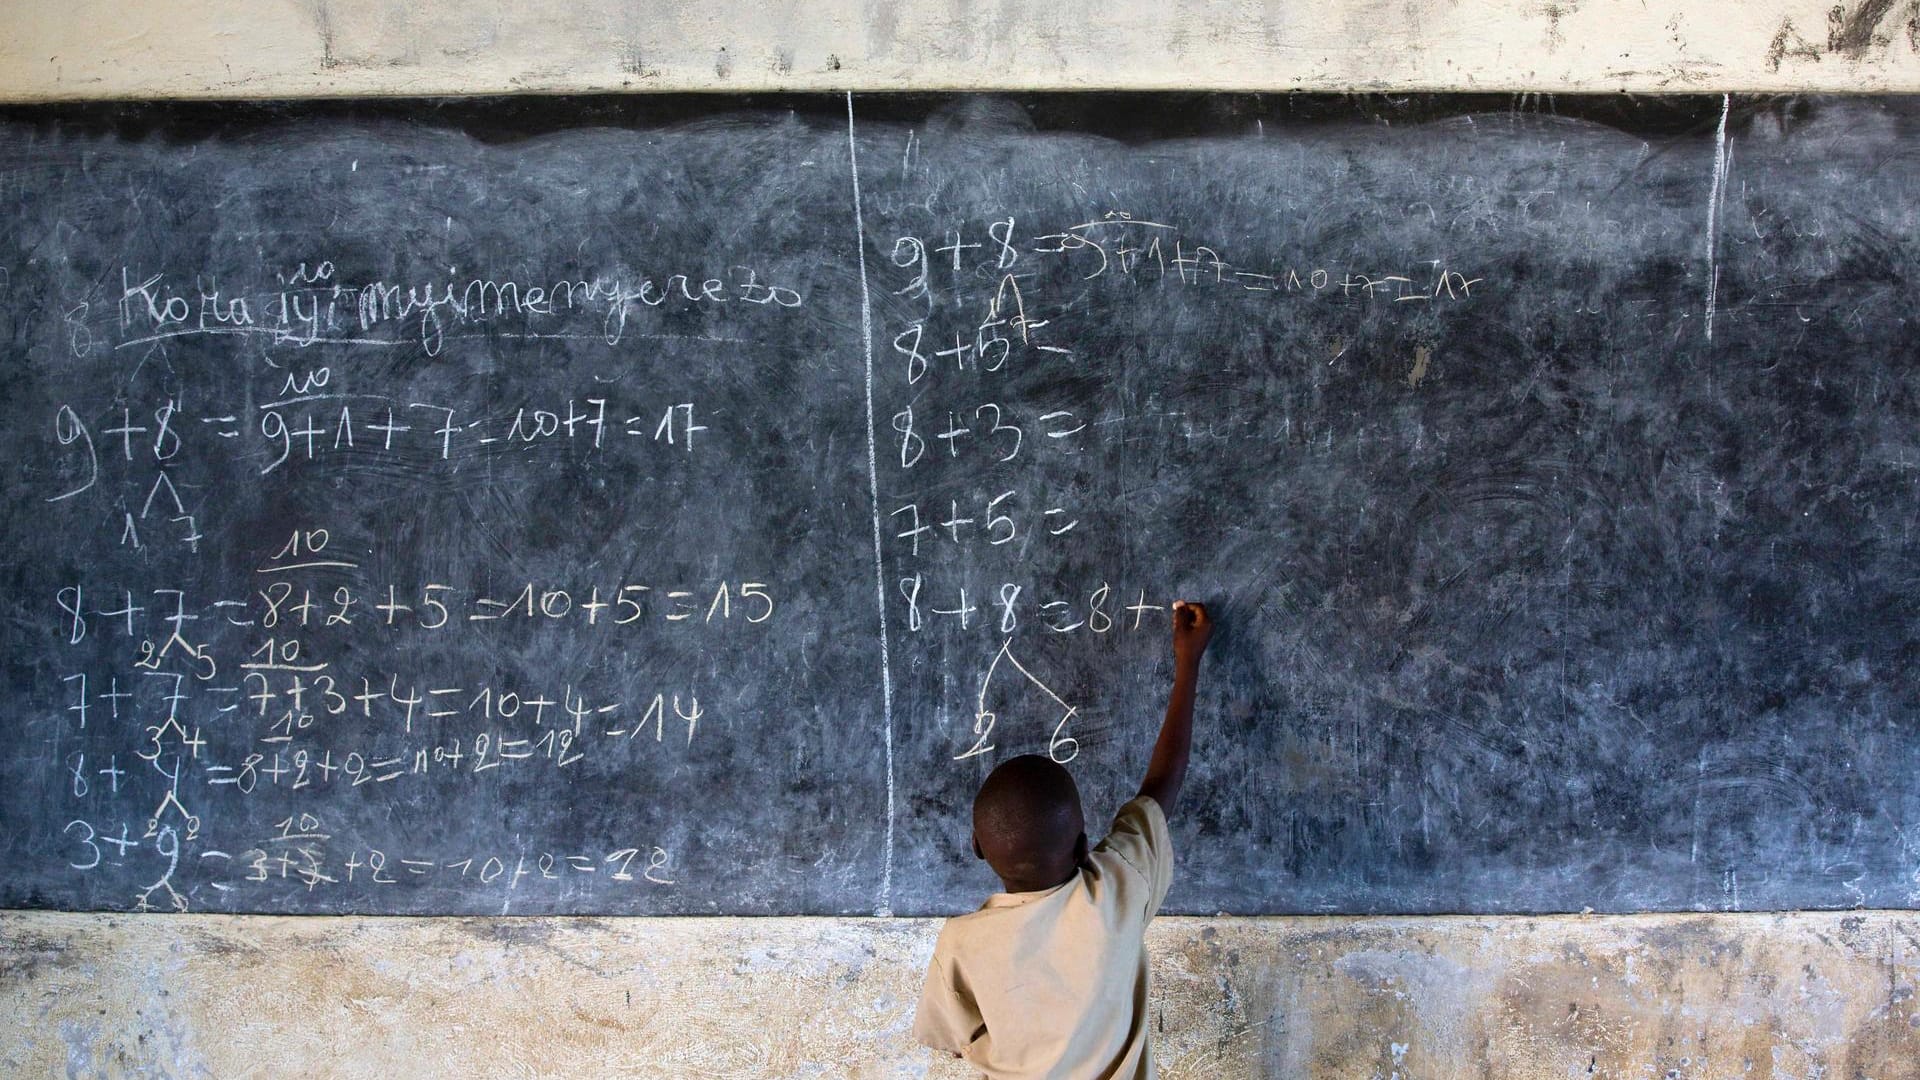 10
Kora iyi myimenyerezo
10
9+8 = 9+1+7=10+7=17
1 7
10
8+7=8+2+5=10+5=15
2 5
10
7+7=7+3+4=10+4=14
3 4
10
8+4=8+2+2=10+2=12
2 2
10
+2=10+2=12
3+9
10
9+8=9+1+7=10+7=17
1 7
8+5=
8+3=
7+5=
8+8=8+
2 6